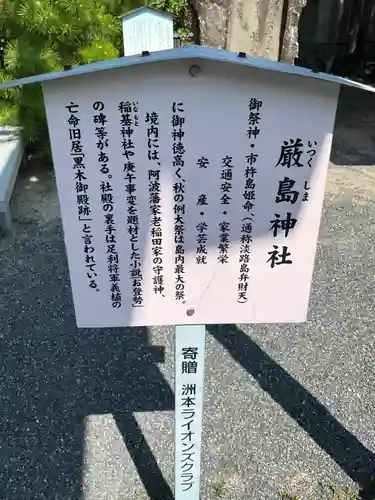 いつく しま
厳島神社
御祭神・市杵島姫命、(通称淡路島弁財天)
交通安全・家業繁栄
安 産・学芸成就
に御神徳高く、秋の例大祭は島内最大の祭。
境内には、阿波藩家老稲田家の守護神、
いなもと
稲基神社や庚午事変を題材とした小説「お登勢」
の碑等がある。社殿の裏手は足利将軍義稙の
亡命旧居「黒木御殿跡」と言われている。
寄贈 洲本ライオンズクラブ